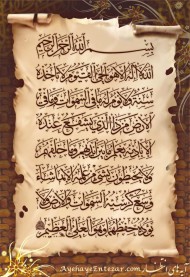 بِسْمِ اللَّهِ الرَّحْمَنِ الرَّحِيمِ
اللَّهُ لَا إِلَهَ إِلَّا هُوَ الْحَيُّ الْقَيُّومُ لَا تَأْخُذُهُ
سِنَةٌ وَلَا نَوْمٌ لَهُ مَا فِي السَّمَوَاتِ وَمَا فِي
الْأَرْضِ مَنْ ذَا الَّذِي يَشْفَعُ عِنْدَهُ
إِلَّا بِإِذْنِهِ يَعْلَمُ مَا بَيْنَ أَيْدِيهِمْ وَمَا خَلْفَهُمْ
وَلَا يُحِيطُونَ بِشَيْءٍ مِنْ عِلْمِهِ إِلَّا بِمَا شَاءَ
وَسِعَ كُرْسِيُّهُ السَّمَوَاتِ وَالْأَرْضَ وَلَا
يَئُودُهُ حِفْظُهُمَا وَهُوَ الْعَلِيُّ الْعَظِيمُ
www.AyehayeEntezar.com